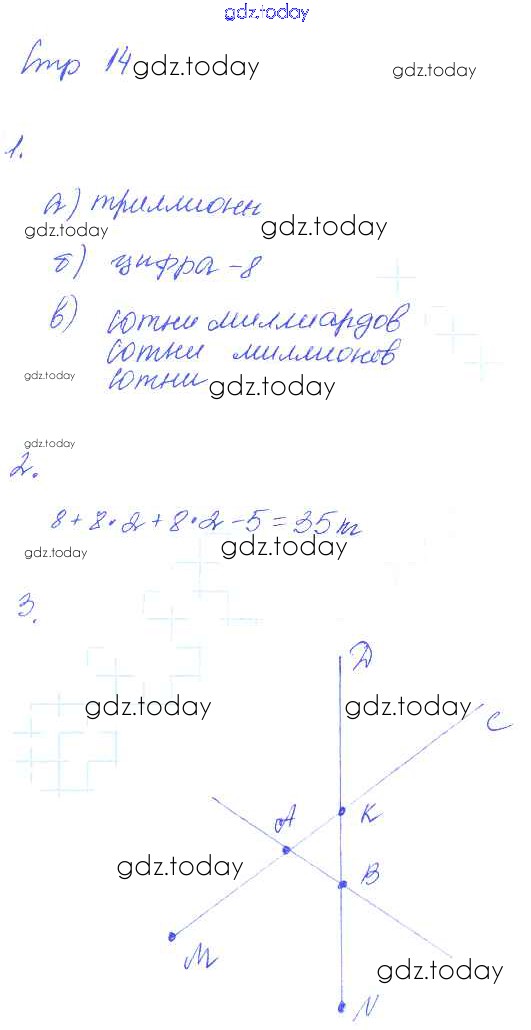 gdz.today
Стр 14 gdz.today gdz.today
1.
а) триллионы gdz.today
gdz.today
б) цифра - 8
в) сотни миллиардов
сотни миллионов
gdz.today сотни gdz.today
gdz.today
2.
8 + 8 · 2 + 8 · 2 - 5 = 35 кг
gdz.today gdz.today
3.
D
gdz.today gdz.today
C
A K
gdz.today B
M gdz.today
N